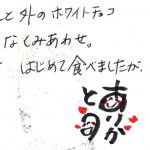 と外のホワイトチョコ
なくみあわせ。
はじめて食べましたが、
ありが
と